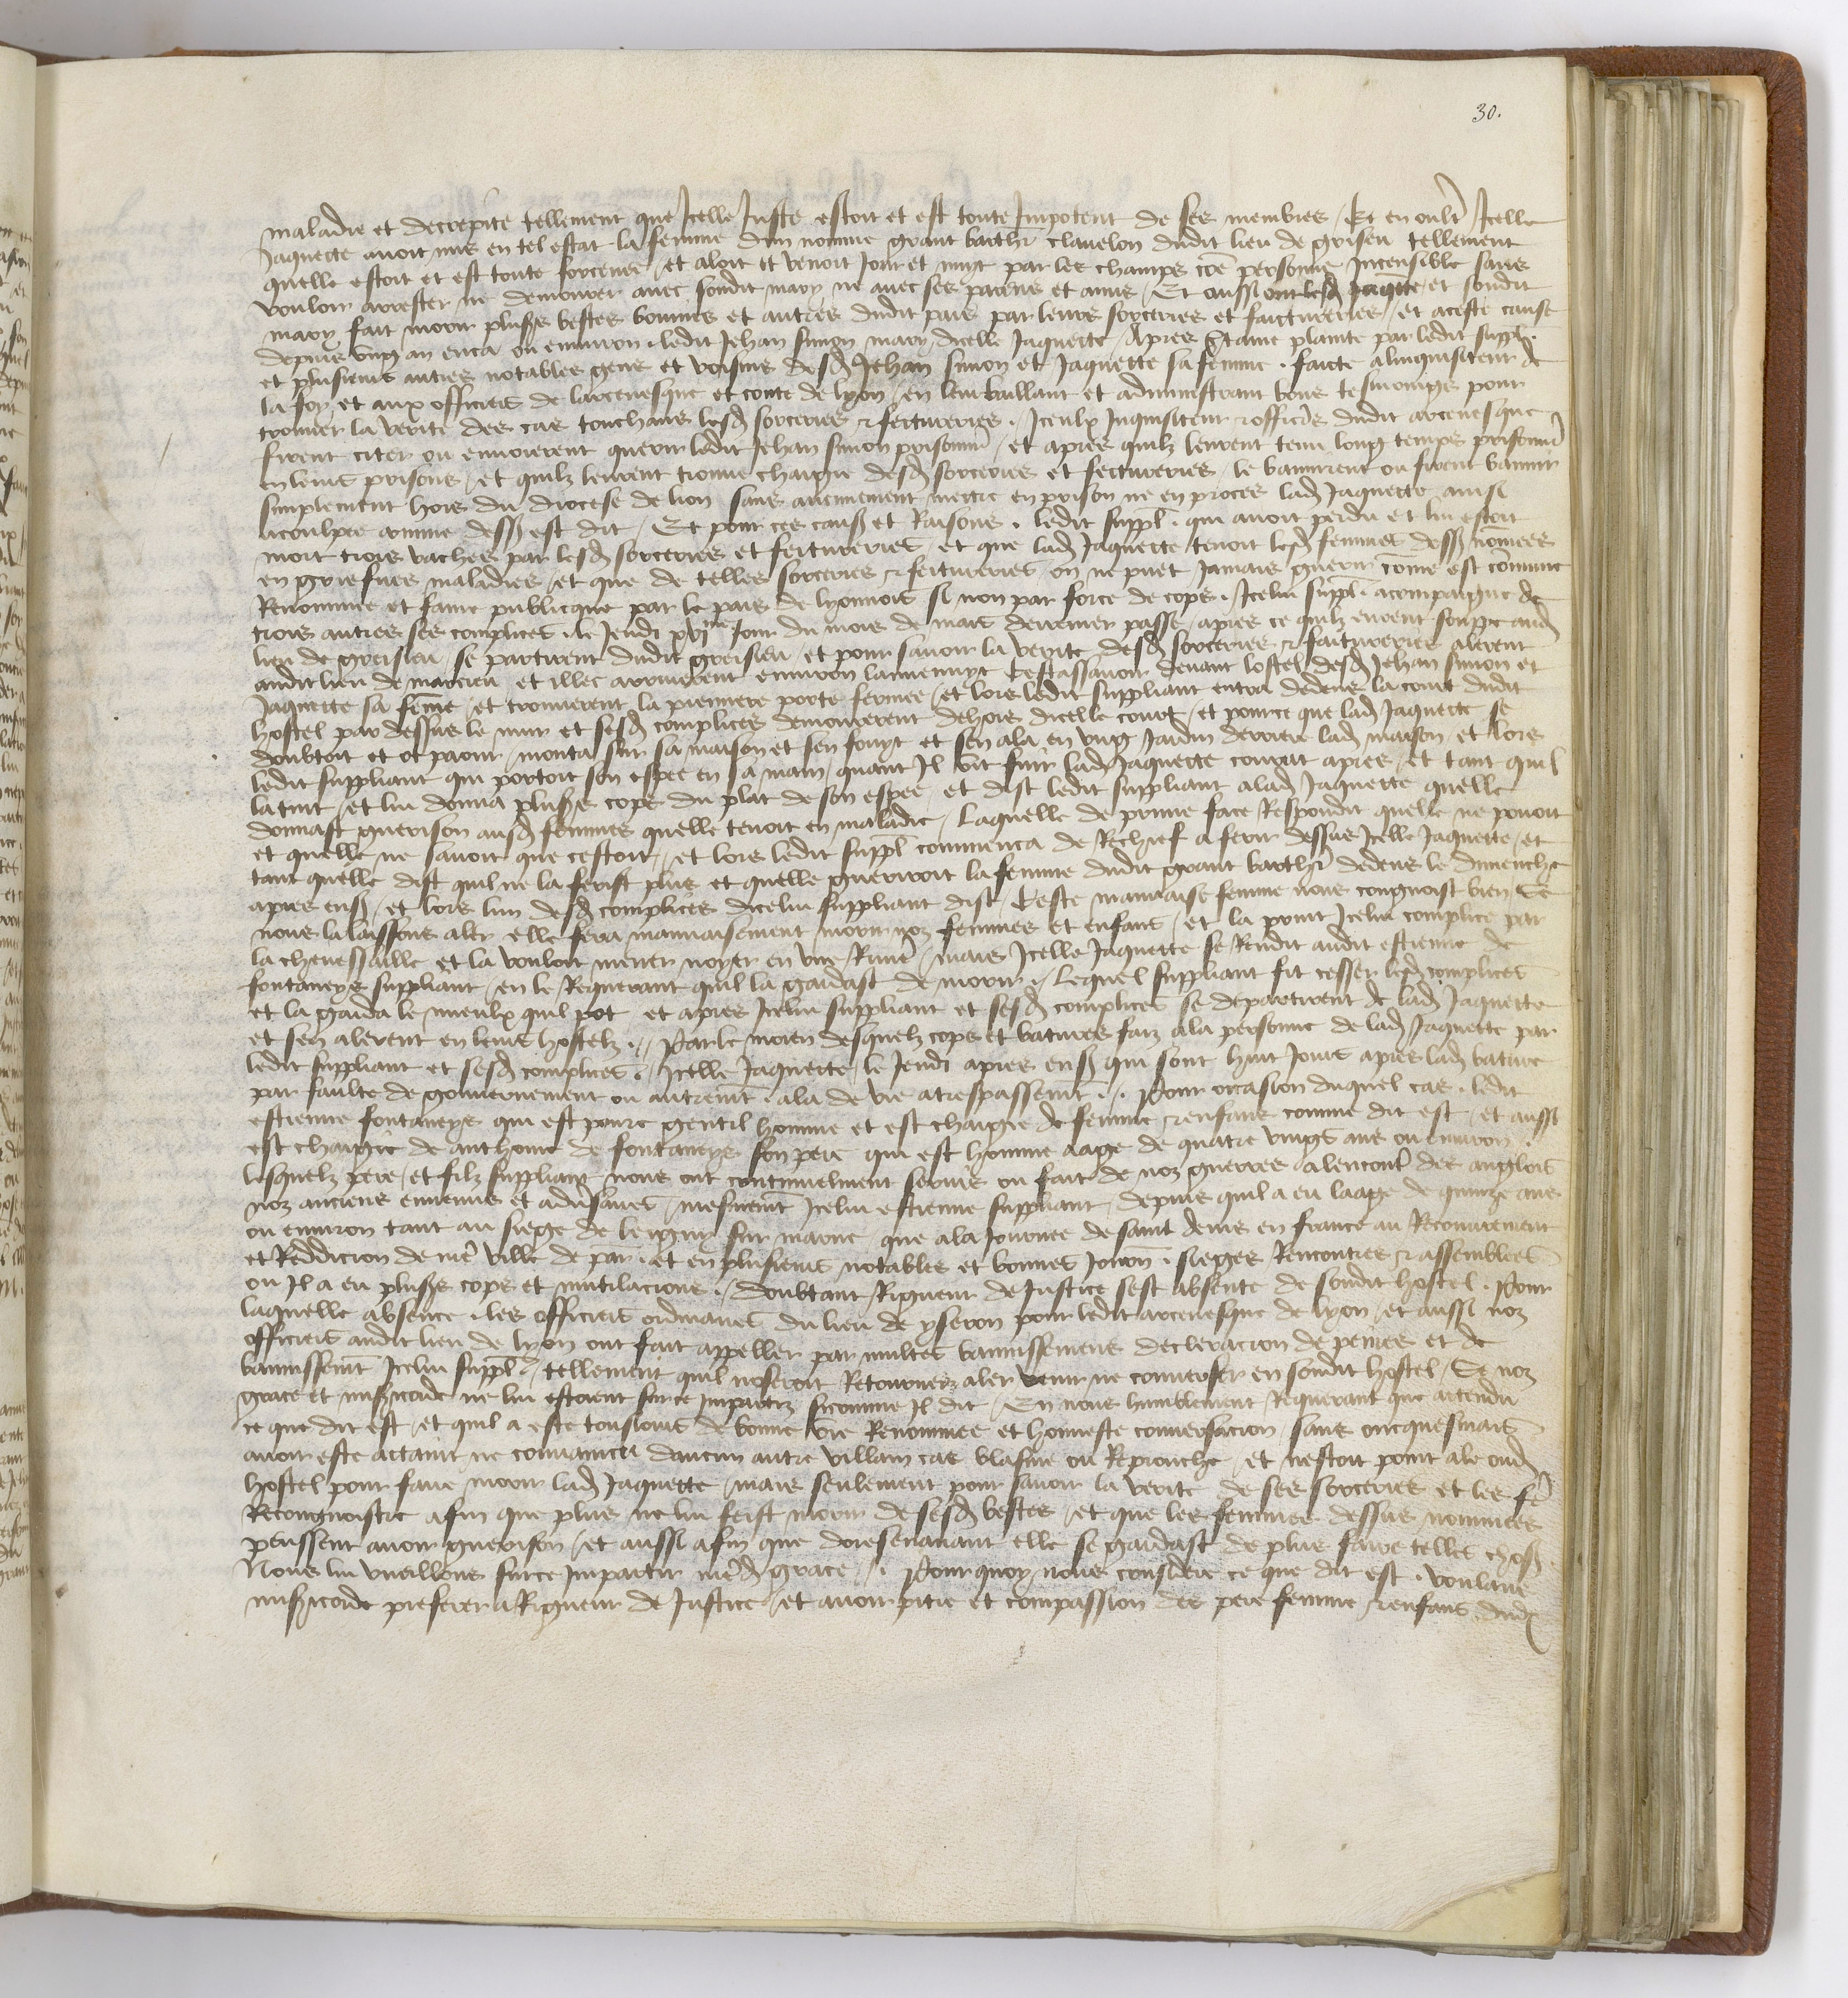 30.
maladie et decrepite tellement que Icelle Juste estoit et est toute Impotent de ses membres / Et en oultr Icelle
Jaquette avoit mis en tel estat la femme dun nomme grant barthi clavelon dudit lieu de grisieu tellement
quelle estoit et est toute forcenee / et aloit et venoit Jour et nuyt par les champs coe personne Incensible sans
vouloir arrester ne demourer avec sondit mary ne avec ses parens et amis / Et aussi ont lesd Jaquette et sondit
mary fait morir pluss bestes bovines et autres dudit pais par leurs sorceries et faictureries / et aceste cause
depuis ung an enca ou environ . ledit Jehan simon mary dicelle Jaquette / Apres Ctaine plainte par ledit suppl.
et plusieurs autres notables gens et voisins desd Jehan simon et Jaquette sa femme . faicte alinquisiteur de
la foy et aux officiers de larcevesque et conte de lyon / en leur baillant et administrant bons tesmoings pour
trouver la verite des cas touchans lesd sorceries & feitureries . Iceulx Inquisiteur & officiers dudit arcevesque
firent citer ou envoierent querir ledit Jehan simon prisonnier / et apres quilz leurent tenu long temps prisonnier
en leurs prisons / et quilz leurent trouve chargie desd sorceries et feictureries / le bannirent ou firent bannir
simplement hors du diocese de lion sans aucunement mectre en prison ne en proces lad Jaquette ainsi
acoulpee comme dess est dit / Et pour ces causs et Raisons . ledit suppl . qui avoit perdu et lui estoit
mort trois vaches par lesd sorceries et feitureries / et que lad Jaquette tenoit lesd femmes dess nomees
en griefves maladies / et que de telles sorceries & feitureries on ne puet Jamais guerir comme est commune
Renommee et fame publicque par le pais de lyonnois si non par force de cops . Icelui suppl . acompaigne de
trois autres ses complices . le Jeudi xvjme Jour du mois de mars derrenier passe / apres ce quilz eurent souppe aud
lieu de greisieu / se partirent dudit greisieu / et pour savoir la verite desd sorceries & faitureries alerent
audit lieu de marcieu et illec arriverent environ lamienuyt Cestassavoir devant lostel desd Jehan simon et
Jaquette sa feme / et trouverent la premiere porte fermee / et lors ledit suppliant entra dedens la court dudit
hostel par dessus le mur et sesd complices demourerent dehors dicelle court / et pource que lad Jaquette se
doubtoit et ot paour / monta sur sa maison et sen fouyt et sen ala en ung Jardin derriere lad maison et lors
ledit suppliant qui portoit son espee en sa main / quant Il vit fuir lad Jaquette courut apres / et tant quil
latint / et lui donna pluss cops du plat de son espee / et dist ledit suppliant alad Jaquette quelle
donnast guerison ausd femmes quelle tenoit en maladie / Laquelle de prime face Respondit quelle ne povoit
et quelle ne savoit que cestoit / et lors ledit suppl commenca de Rechief a ferir dessus Icelle Jaquette / et
tant quelle dist quil ne la ferist plus et quelle gueriroit la femme dudit grant barthi dedens le dimenche
apres ens / et lors lun desd complices dicelui suppliant dist / Ceste mauvaise femme nous congnoist bien Se
nous la laissons aler elle fera mauvaisement morir noz femmes et enfans / et la print Icelui complice par
la chevessaille et la vouloit mener noyer en une Rivie / mais Icelle Jaquette se Rendit audit estienne de
fontaneys suppliant / en le Requerant quil la gardast de morir . / Lequel suppliant fit cesser lesd complices
et la garda le mieulx quil pot et apres Icelui suppliant et sesd complices se departirent de lad Jaquette
et sen alerent en leurs hostelz . // Par le moien desquelz cops et batures faiz ala personne de lad Jaquette par
ledit suppliant et sesd complices . / Icelle Jaquette le Jeudi apres ens qui sont huit Jours apres lad bature
par faulte de gouvernement ou autremt . ala de vie atrespassement . / . Pour occasion duquel cas . ledit
estienne fontaneys qui est povre gentil homme et est chargie de femme & enfans comme dit est / et aussi
est chargie de anthoine de fontaneys son pere qui est homme aage de quatre vings ans ou environ .
lesquelz pere / et filz suppliant nous ont continuelment servis ou fait de noz guerres alencontr des anglois
noz anciens ennemis et advsaires / mesmemt Icelui estienne suppliant / depuis quil a eu laage de quinze ans
ou environ tant au siege de leigny sur marne / que ala Journee de saint denis en france au Recouvrement
et Reddicion de nre ville de par . et en plusieurs notables et bonnes Journ . sieges Rencontres & assemblees
ou Il a eu pluss cops et mutilacions . / doubtant Rigueur de Justice sest absente de sondit hostel . Pour
laquelle absence . les officiers ordinaires du lieu de yseron pour ledit arcevesque de lyon / et aussi noz
officiers audit lieu de lyon ont fait appeller par multes bannissemens decleracion de peines et de
bannissemt Icelui suppl . / tellement quil noseroit Retourner aler venir ne converser en sondit hostel / Se noz
grace et misicorde ne lui estoient surce Imparties sicomme Il dit / En nous humblement Requerant que attendu
ce que dit est / et quil a este tousiours de bonne vie Renommee et honneste conversacion / sans oncquesmais
avoir este actaint ne convaincu daucun autre villain cas blasme ou Reprouche / et nestoit point ale oud
hostel pour faire morir lad Jaquette / mais seulement pour savoir la verite de ses sorceries et les fe
Recongnoistre afin que plus ne lui feist morir de sesd bestes / et que les femmes dessus nommees
peussent avoir guerison / et aussi afin que doresenavant elle se gardast de plus faire telles choss .
Nous lui vueillons surce Impartir nred grace / . Pour quoy nous considere ce que dit est . voulans
misicorde preferer a Rigueur de Justice / et avoir pitie et compassion des pere femme & enfans dud